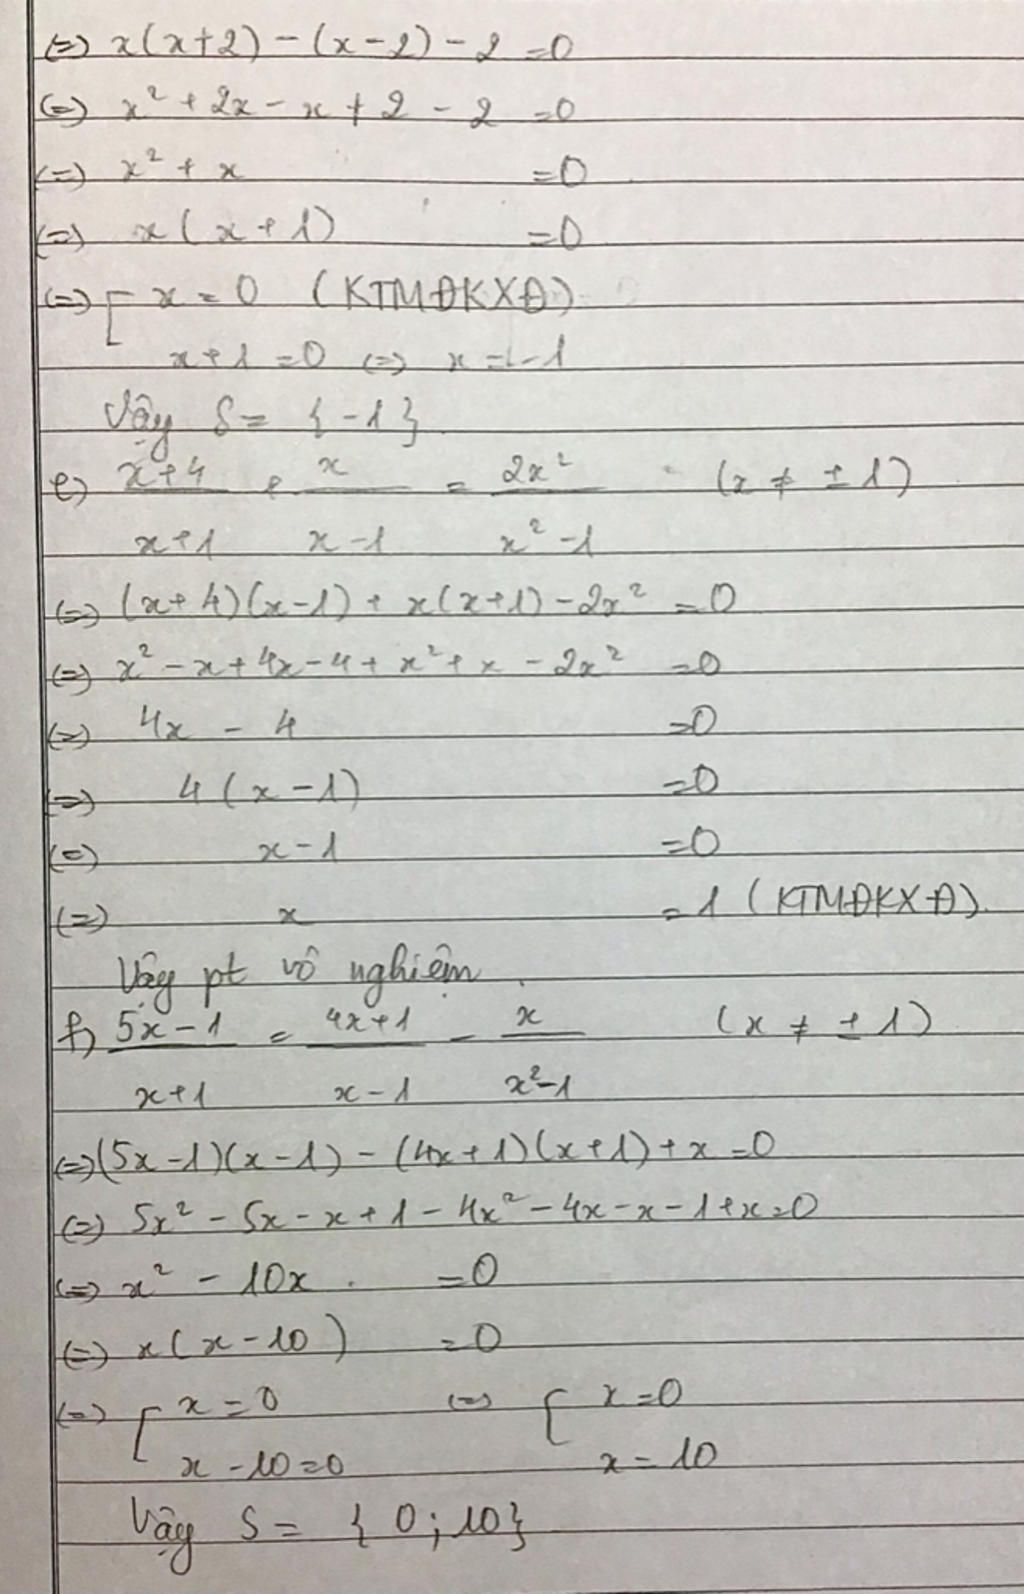 (=) x(x+2) - (x-2) - 2 = 0
(=) x² + 2x - x + 2 - 2 = 0
(=) x² + x = 0
(=) x(x+1) = 0
(=) [ x = 0 (KTMĐKXĐ)
x+1 = 0 (=) x = -1
Vậy S = {-1}
e) x+4 + x = 2x² (x ≠ ±1)
x+1 x-1 x²-1
(=) (x+4)(x-1) + x(x+1) - 2x² = 0
(=) x² - x + 4x - 4 + x² + x - 2x² = 0
(=) 4x - 4 = 0
(=) 4(x-1) = 0
(=) x-1 = 0
(=) x = 1 (KTMĐKXĐ).
Vậy pt vô nghiệm
f) 5x-1 = 4x+1 - x (x ≠ ±1)
x+1 x-1 x²-1
(=) (5x-1)(x-1) - (4x+1)(x+1) + x = 0
(=) 5x² - 5x - x + 1 - 4x² - 4x - x - 1 + x = 0
(=) x² - 10x = 0
(=) x(x-10) = 0
(=) [ x = 0 (=) [ x = 0
x - 10 = 0 x = 10
Vậy S = {0; 10}